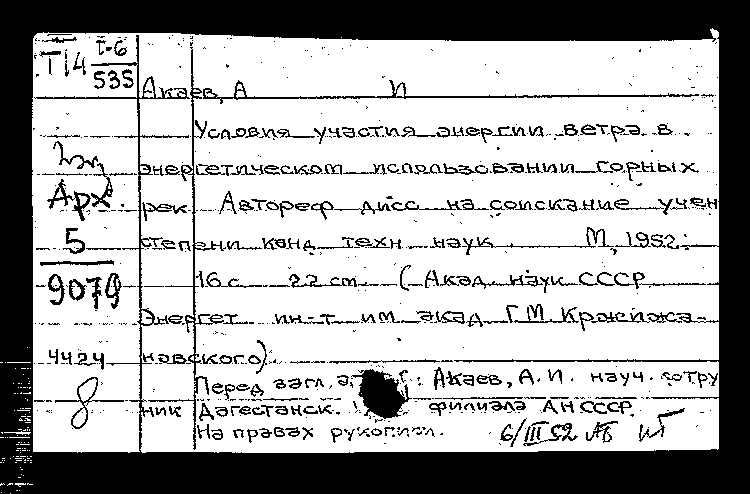 Т14 I-6
535
Акаев, А И
Условия участия энергии ветра в
энергетическом использовании горных
Арх. рек Автореф дисс на соискание учен
5 степени канд техн наук. М, 1952:
9079 16 с 22 cm (Акад. наук СССР
Энергет ин-т им акад Г.М. Кржижа-
4424 новского).
8 Перед загл. : Акаев, А.И. науч. сотру
ник Дагестанск. филиала АН СССР.
На правах рукописи. 6/III 52